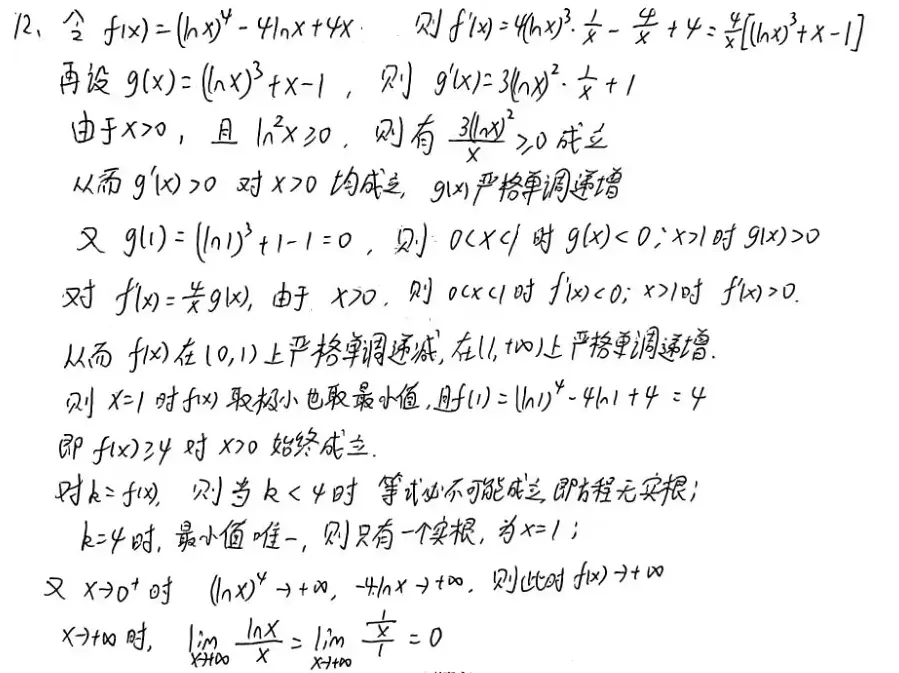 12、令 f(x)=(lnx)⁴-4lnx+4x. 则 f'(x)=4(lnx)³·1/x-4/x+4=4/x[(lnx)³+x-1]
再设 g(x)=(lnx)³+x-1，则 g'(x)=3(lnx)²·1/x+1
由于x>0，且 ln²x≥0，则有 3(lnx)²/x≥0 成立
从而 g'(x)>0 对 x>0 均成立，g(x)严格单调递增
又 g(1)=(ln1)³+1-1=0，则 0<x<1 时 g(x)<0；x>1时 g(x)>0
对 f'(x)=4/x g(x)，由于 x>0，则 0<x<1时 f'(x)<0；x>1时 f'(x)>0.
从而 f(x)在(0,1)上严格单调递减，在(1,+∞)上严格单调递增.
则 x=1时f(x)取极小也取最小值，且f(1)=(ln1)⁴-4ln1+4=4
即 f(x)≥4 对 x>0 始终成立.
对k=f(x)，则当 k<4时 等式必不可能成立，即方程无实根；
k=4时，最小值唯一，则只有一个实根，为x=1；
又 x→0⁺时 (lnx)⁴→+∞，-4lnx→+∞，则此时f(x)→+∞
x→+∞时，lim x→+∞ lnx/x = lim x→+∞ (1/x)/1 = 0